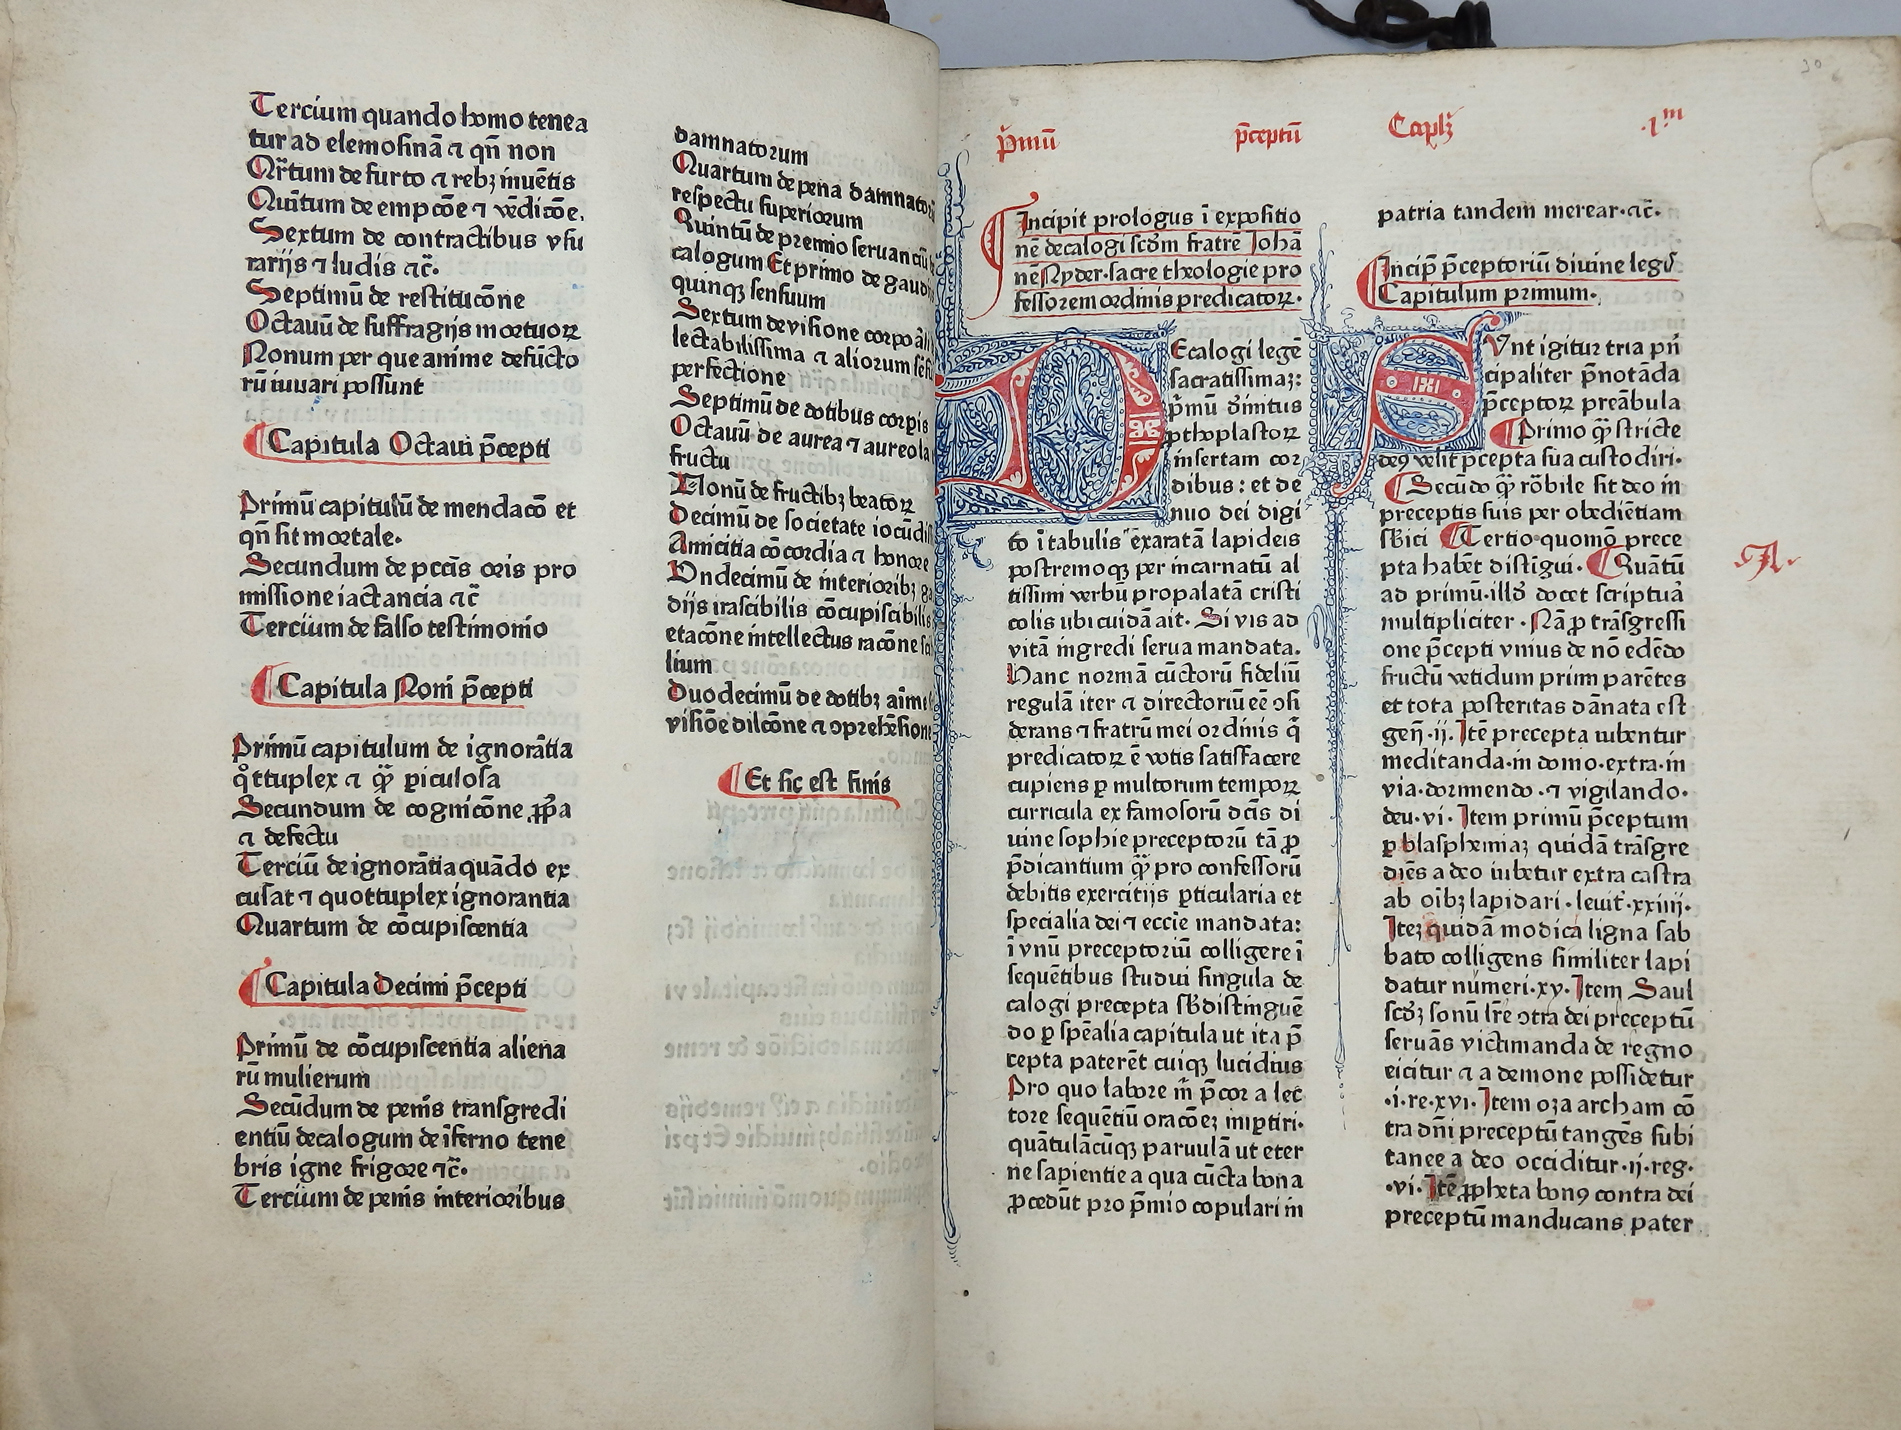 Tercium quando homo tenea
tur ad elemosinā ⁊ qn̄ non
Qr̄tum de furto ⁊ rebꝫ inuētis
Quītum de empcōe ⁊ vēdicōe.
Sextum de contractibus vsu
rarijs ⁊ ludis ⁊c̄.
Septimū de restitucōne
Octauū de suffragijs mortuoꝝ
Nonum per que anime defūcto
rū iuuari possunt
Capitula Octaui p̄cepti
Primū capitulū de mendacō et
qn̄ sit mortale.
Secundum de pccīs oris pro
missione iactancia ⁊c̄
Tercium de falso testimonio
Capitula Noni p̄cepti
Primū capitulum de ignorātia
qͦttuplex ⁊ qͣꝫ ꝑiculosa
Secundum de cognicōne ꝓp̄a
⁊ defectu
Terciū de ignorātia quādo ex
cusat ⁊ quottuplex ignorantia
Quartum de cōcupiscentia
Capitula Decimi p̄cepti
Primū de cōcupiscentia aliena
rū mulierum
Secūdum de penis transgredi
entiū decalogum de īferno tene
bris igne frigore ⁊c̄.
Tercium de penis interioribus
damnatorum
Quartum de pena damnatoꝝ
respectu superiorum
Quintū de premio seruanciū
calogum Et primo de gaudi
quinqꝫ sensuum
Sextum de visione corpo
lectabilissima ⁊ aliorum
perfectione
Septimū de dotibus corpis
Octauū de aurea ⁊ aureola
fructu
Nonū de fructibꝫ beatoꝝ
Decimū de societate iocūdi
Amicitia cōcordia ⁊ honore
Undecimū de interioribꝫ
dijs irascibilis cōcupiscibilis
etacōne intellectus racōne
lium
Duodecimū de dotibꝫ aīme
visiōe dilcōne ⁊ ↄprehēsione
Et sic est finis
p̄mū p̄ceptū Caplꝫ .1ᵐ
Incipit prologus ī expositio
nē decalogi scd̄m fratrē Johā
nē Nyder. sacre theologie pro
fessorem ordinis predicatoꝝ.
DEcalogi legē
sacratissimaꝫ:
p̄mū diūnitus
ꝓthoplastoꝝ
insertam cor
dibus: et de
nuo dei digi
to ī tabulis exaratā lapideis
postremoqꝫ per incarnatū al
tissimi verbū propalatā cristi
colis ubi cuidā ait. Si vis ad
vitā ingredi serua mandata.
Hanc normā cūctorū fideliū
regulā iter ⁊ directoriū eē ↄsi
derans ⁊ fratrū mei ordinis q̄
predicatoꝝ ē votis satisfacere
cupiens ꝑ multorum tempoꝝ
curricula ex famosorū dc̄is di
uine sophie preceptorū tā ꝓ
p̄dicantium qͣꝫ pro confessorū
debitis exercitijs ꝑticularia et
specialia dei ⁊ eccīe mandata:
ī vnū preceptoriū colligere ī
sequētibus studui singula de
calogi precepta sb̄distinguē
do ꝑ sp̄ealia capitula ut ita p̄
cepta paterēt cuiqꝫ lucidius
Pro quo labore m̄ p̄cor a lec
tore sequētiū oracōeꝫ imꝑtiri.
quātulācūqꝫ paruulā ut eter
ne sapientie a qua cūcta bona
ꝓcedūt pro p̄mio copulari in
patria tandem merear. ⁊c̄.
Incip̄ p̄ceptoriū diuine legis
Capitulum primum.
SVnt igitur tria prī
cipaliter p̄notāda
p̄ceptoꝝ preābula
Primo qͣꝫ stricte
deꝰ velit p̄cepta sua custodiri.
Secūdo qͣꝫ rōbile sit deo in
preceptis suis per obediētiam
sb̄ici Tertio quomō prece
pta habēt distīgui. Quātū
ad primū. illd̄ docet scriptura
multipliciter. Nā ꝓ trāsgressi
one p̄cepti vnius de nō edēdo
fructū vetidum primi parētes
et tota posteritas dānata est
gen̄. ij. Itē precepta iubentur
meditanda. in domo. extra. in
via. dormiendo. ⁊ vigilando.
deu. vi. Item primū p̄ceptum
ꝑ blasphemiaꝫ quidā trāsgre
diēs a deo iubetur extra castra
ab oībꝫ lapidari. leuit̄. xxiiij.
Iteꝫ quidā modica ligna sab
bato colligens similiter lapi
datur numeri. xv. Item Saul
scdꝫ sonū lr̄e ↄtra dei preceptū
seruās victimanda de regno
eicitur ⁊ a demone possidetur
.i. re. xvi. Item oza archam cō
tra dn̄i preceptū tangēs subi
tanee a deo occiditur. ij. reg.
.vi. Itē ꝓpheta bonꝰ contra dei
preceptū manducans pater
.A.